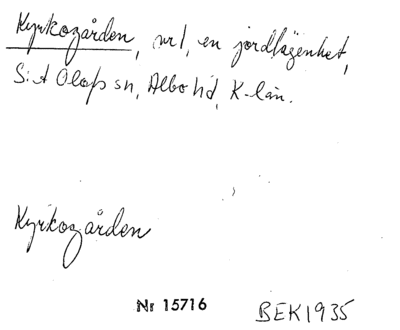 Kyrkogården, nr 1, en jordlägenhet,
S:t Olofs sn, Albo hd, K-län.
Kyrkogården
Nr 15716
BEK 1935